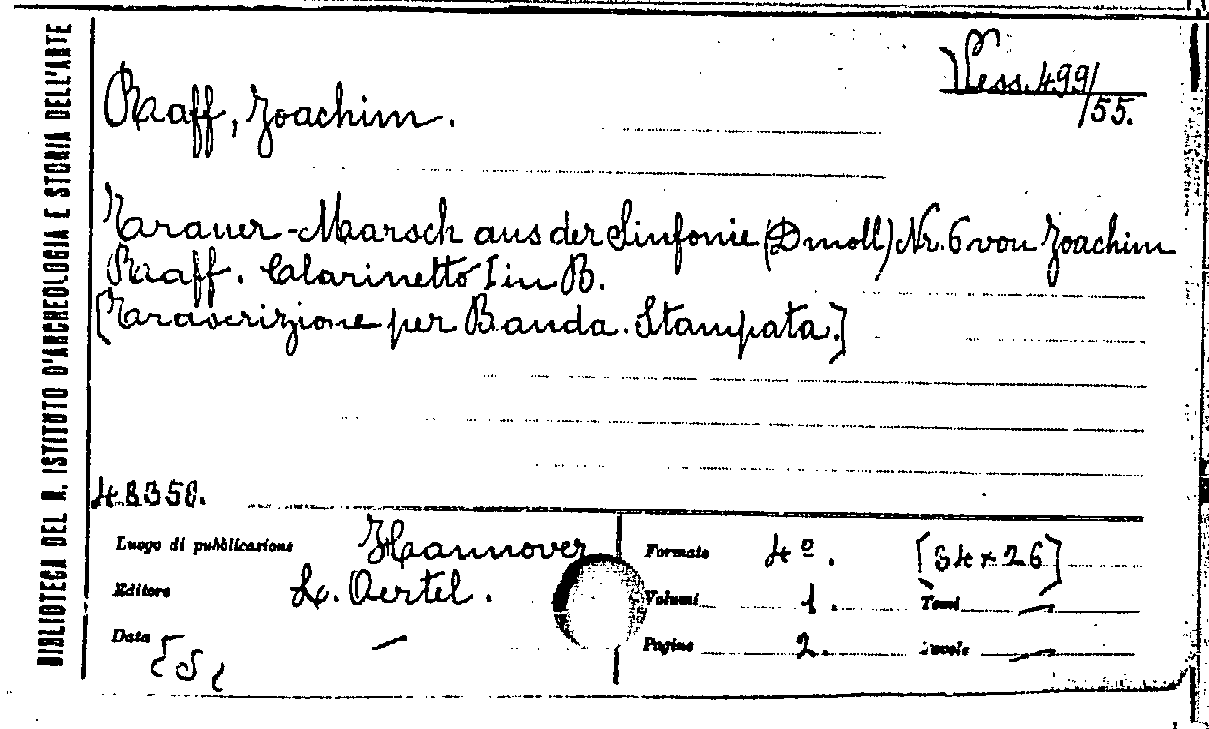 BIBLIOTECA DEL R. ISTITUTO D'ARCHEOLOGIA E STORIA DELL'ARTE
Vess. 499/
/55.
Raff, Joachim.
Trauer-Marsch aus der Sinfonie (D moll) Nr. 6 von Joachim
Raff. Clarinetto I in B.
[Trascrizione per Banda. Stampata.]
48350.
Luogo di pubblicazione Hannover
Editore L. Oertel.
Data —
Formato 4º. [34 × 26]
Volumi 1. Tomi —
Pagine 2. Tavole —